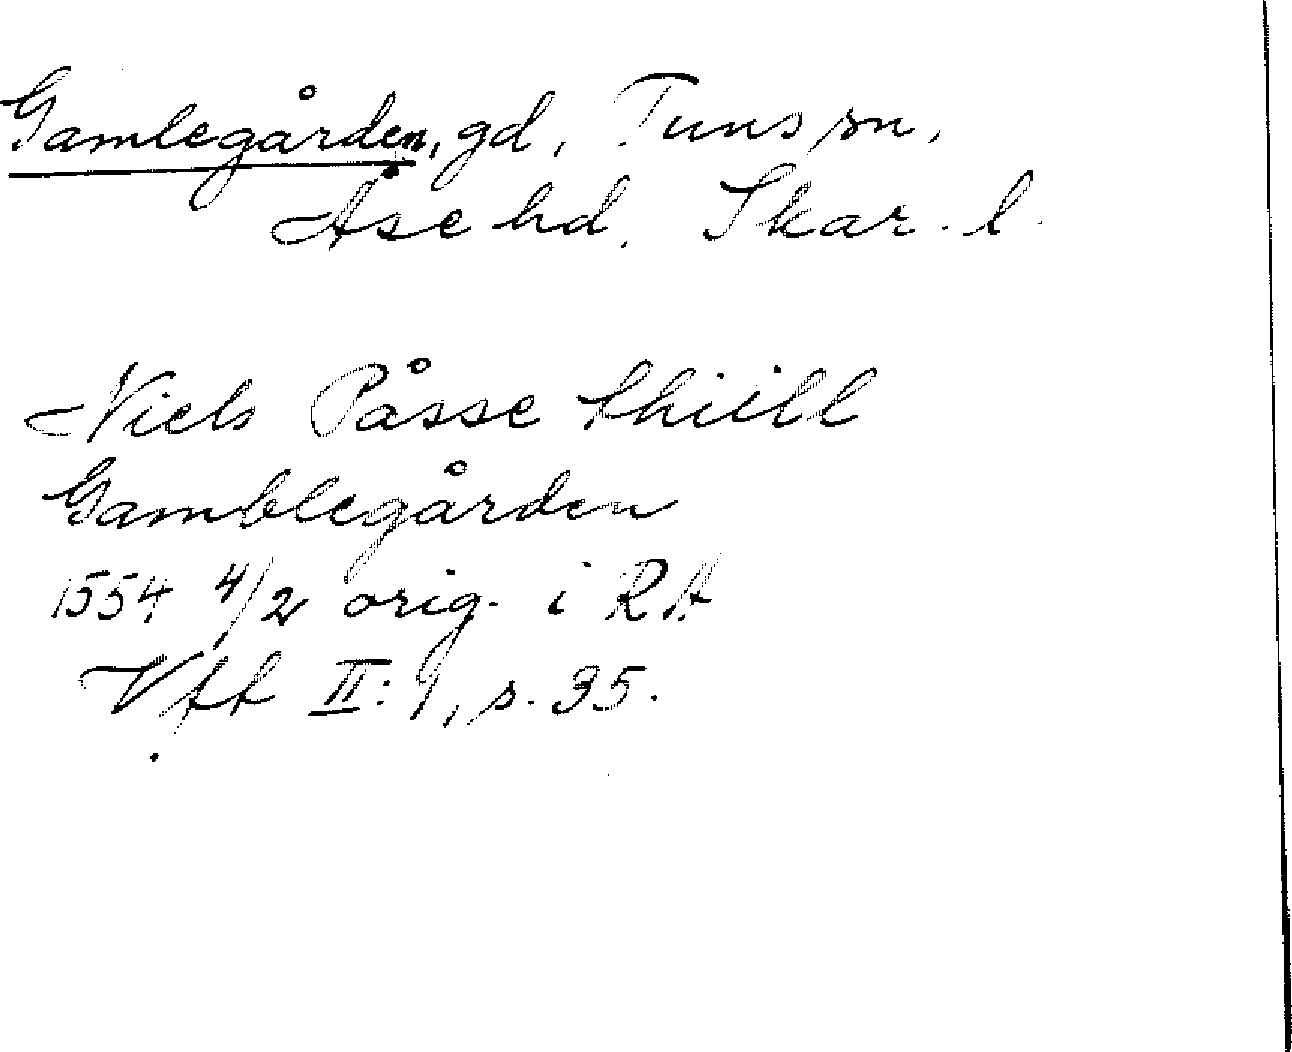 Gamlegården, gd, Tuns sn,
Åse hd. Skar. l.
Niels Påsse thiill
Gamblegården
1554 4/2 orig. i RA
Vff II: 1, s. 35.